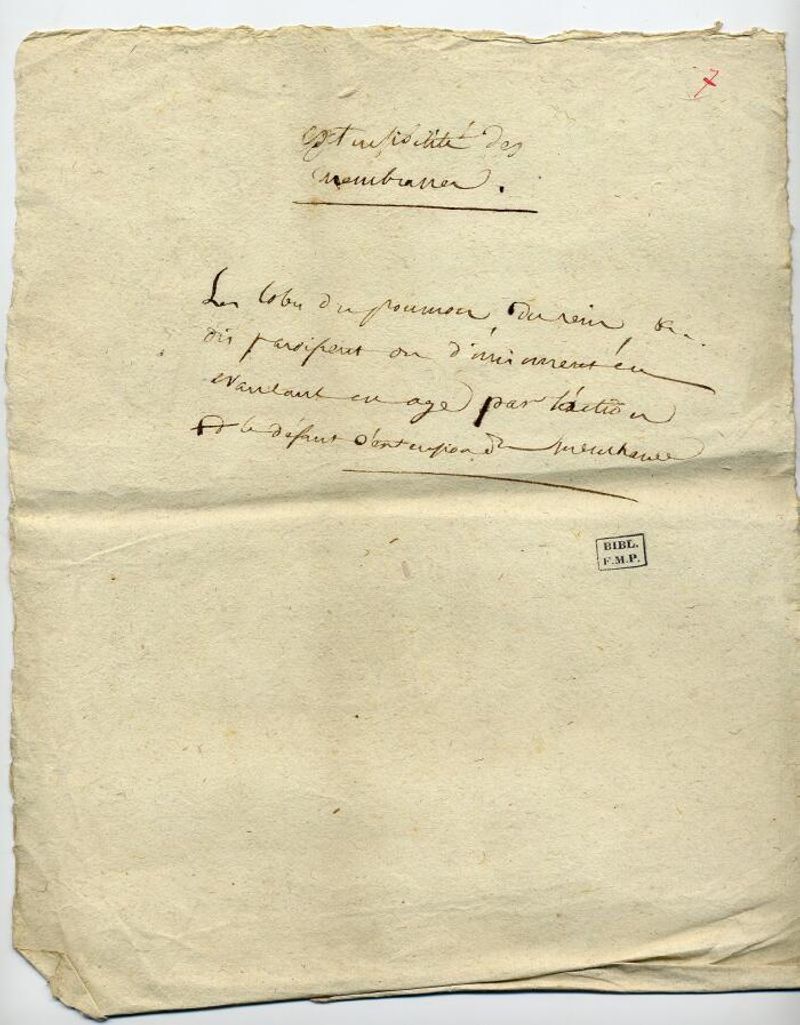 7
extensibilité des
membranes.
Les lobes du poumon, du rein, &a..
disparoissent ou diminuent en
avancant en age par l'action
et le defaut d'extension des membranes
BIBL.
F.M.P.